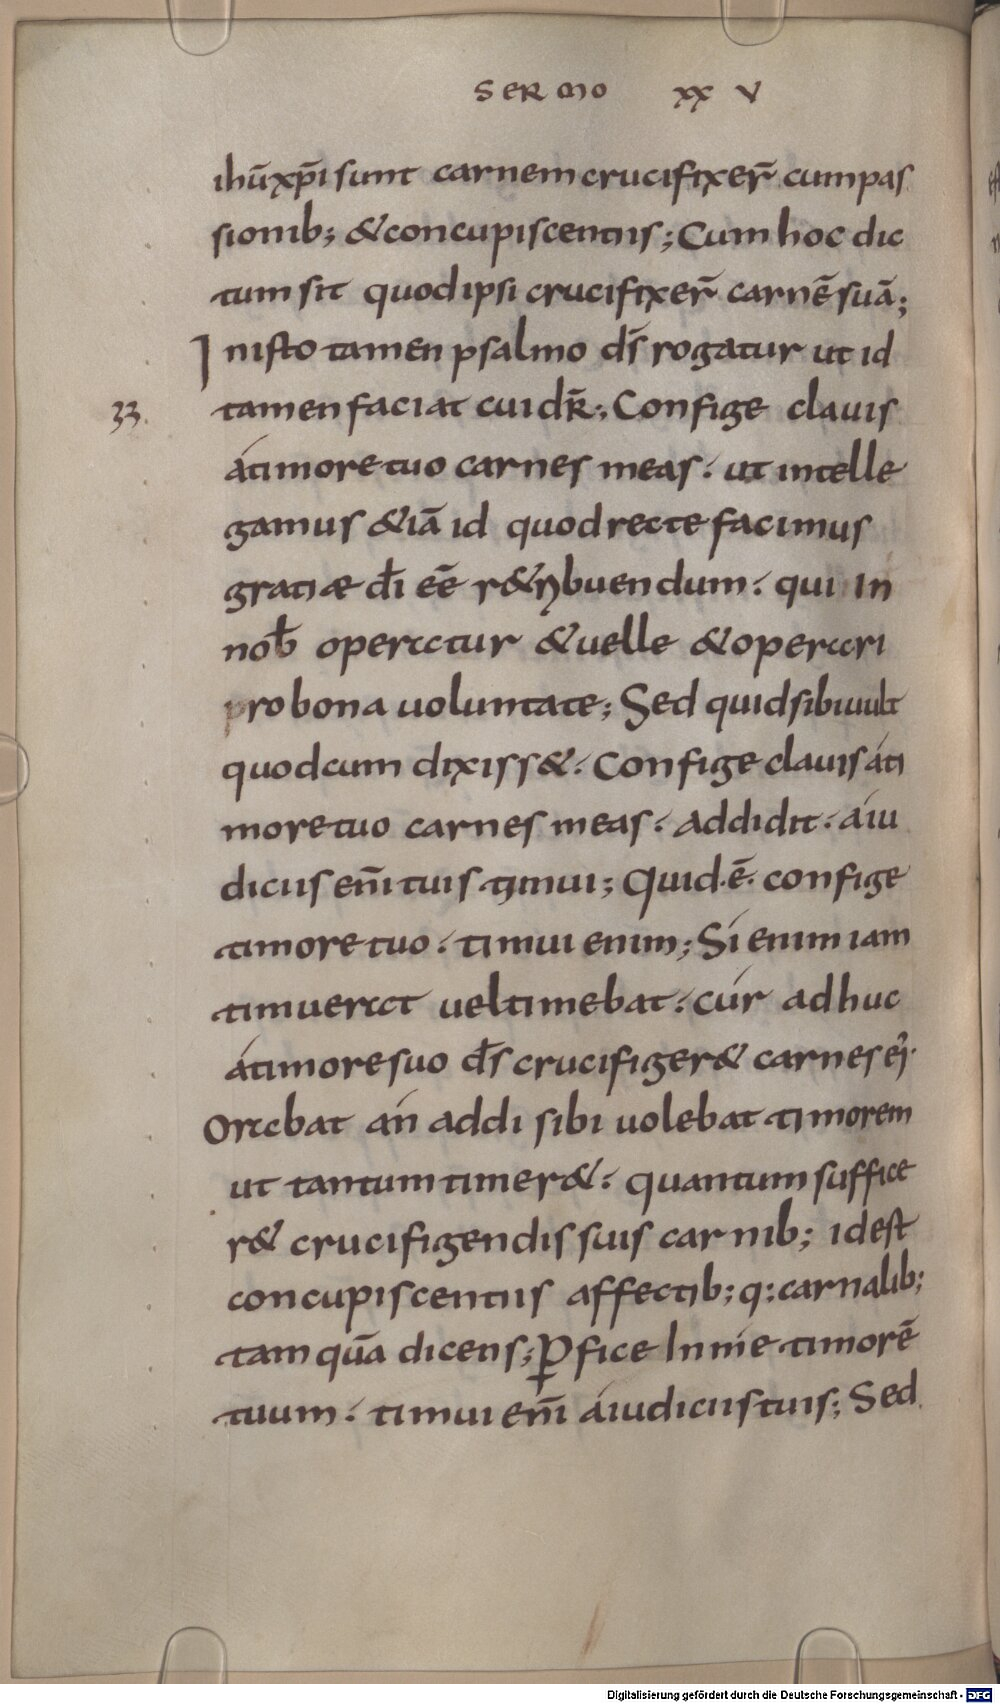 SERMO XXV
ihū xp̄i sunt carnem crucifixer̄ cum pas
sionib; & concupiscentiis; Cum hoc dic
tum sit quod ipsi crucifixer̄ carnē suā;
In isto tamen psalmo d̄s rogatur ut id
33. tamen faciat cui dr̄; Confige clavis
a timore tuo carnes meas. ut intelle
gamus &iā id quod recte facimus
gratiae d̄i eē r&ribuendum. qui in
nob̄ operatur & uelle & operari
pro bona uoluntate; Sed quid sibi uult
quod cum dixiss&. Confige clauis a ti
more tuo carnes meas. addidit. a iu
diciis eni̅ tuis timui; Quid.ē. confige
timore tuo. timui enim; Si enim iam
timuerat uel timebat. cur adhuc
a timore suo d̄s crucifiger& carnes ei'.
Orabat an addi sibi uolebat timorem
ut tantum timer&. quantum suffice
r& crucifigendis suis carnib; id est
concupiscentiis affectib; q: carnalib;
tam quā dicens; ꝑfice In me timorē
tuum. timui eni̅ a iudiciis tuis; Sed
Digitalisierung gefördert durch die Deutsche Forschungsgemeinschaft - DFG